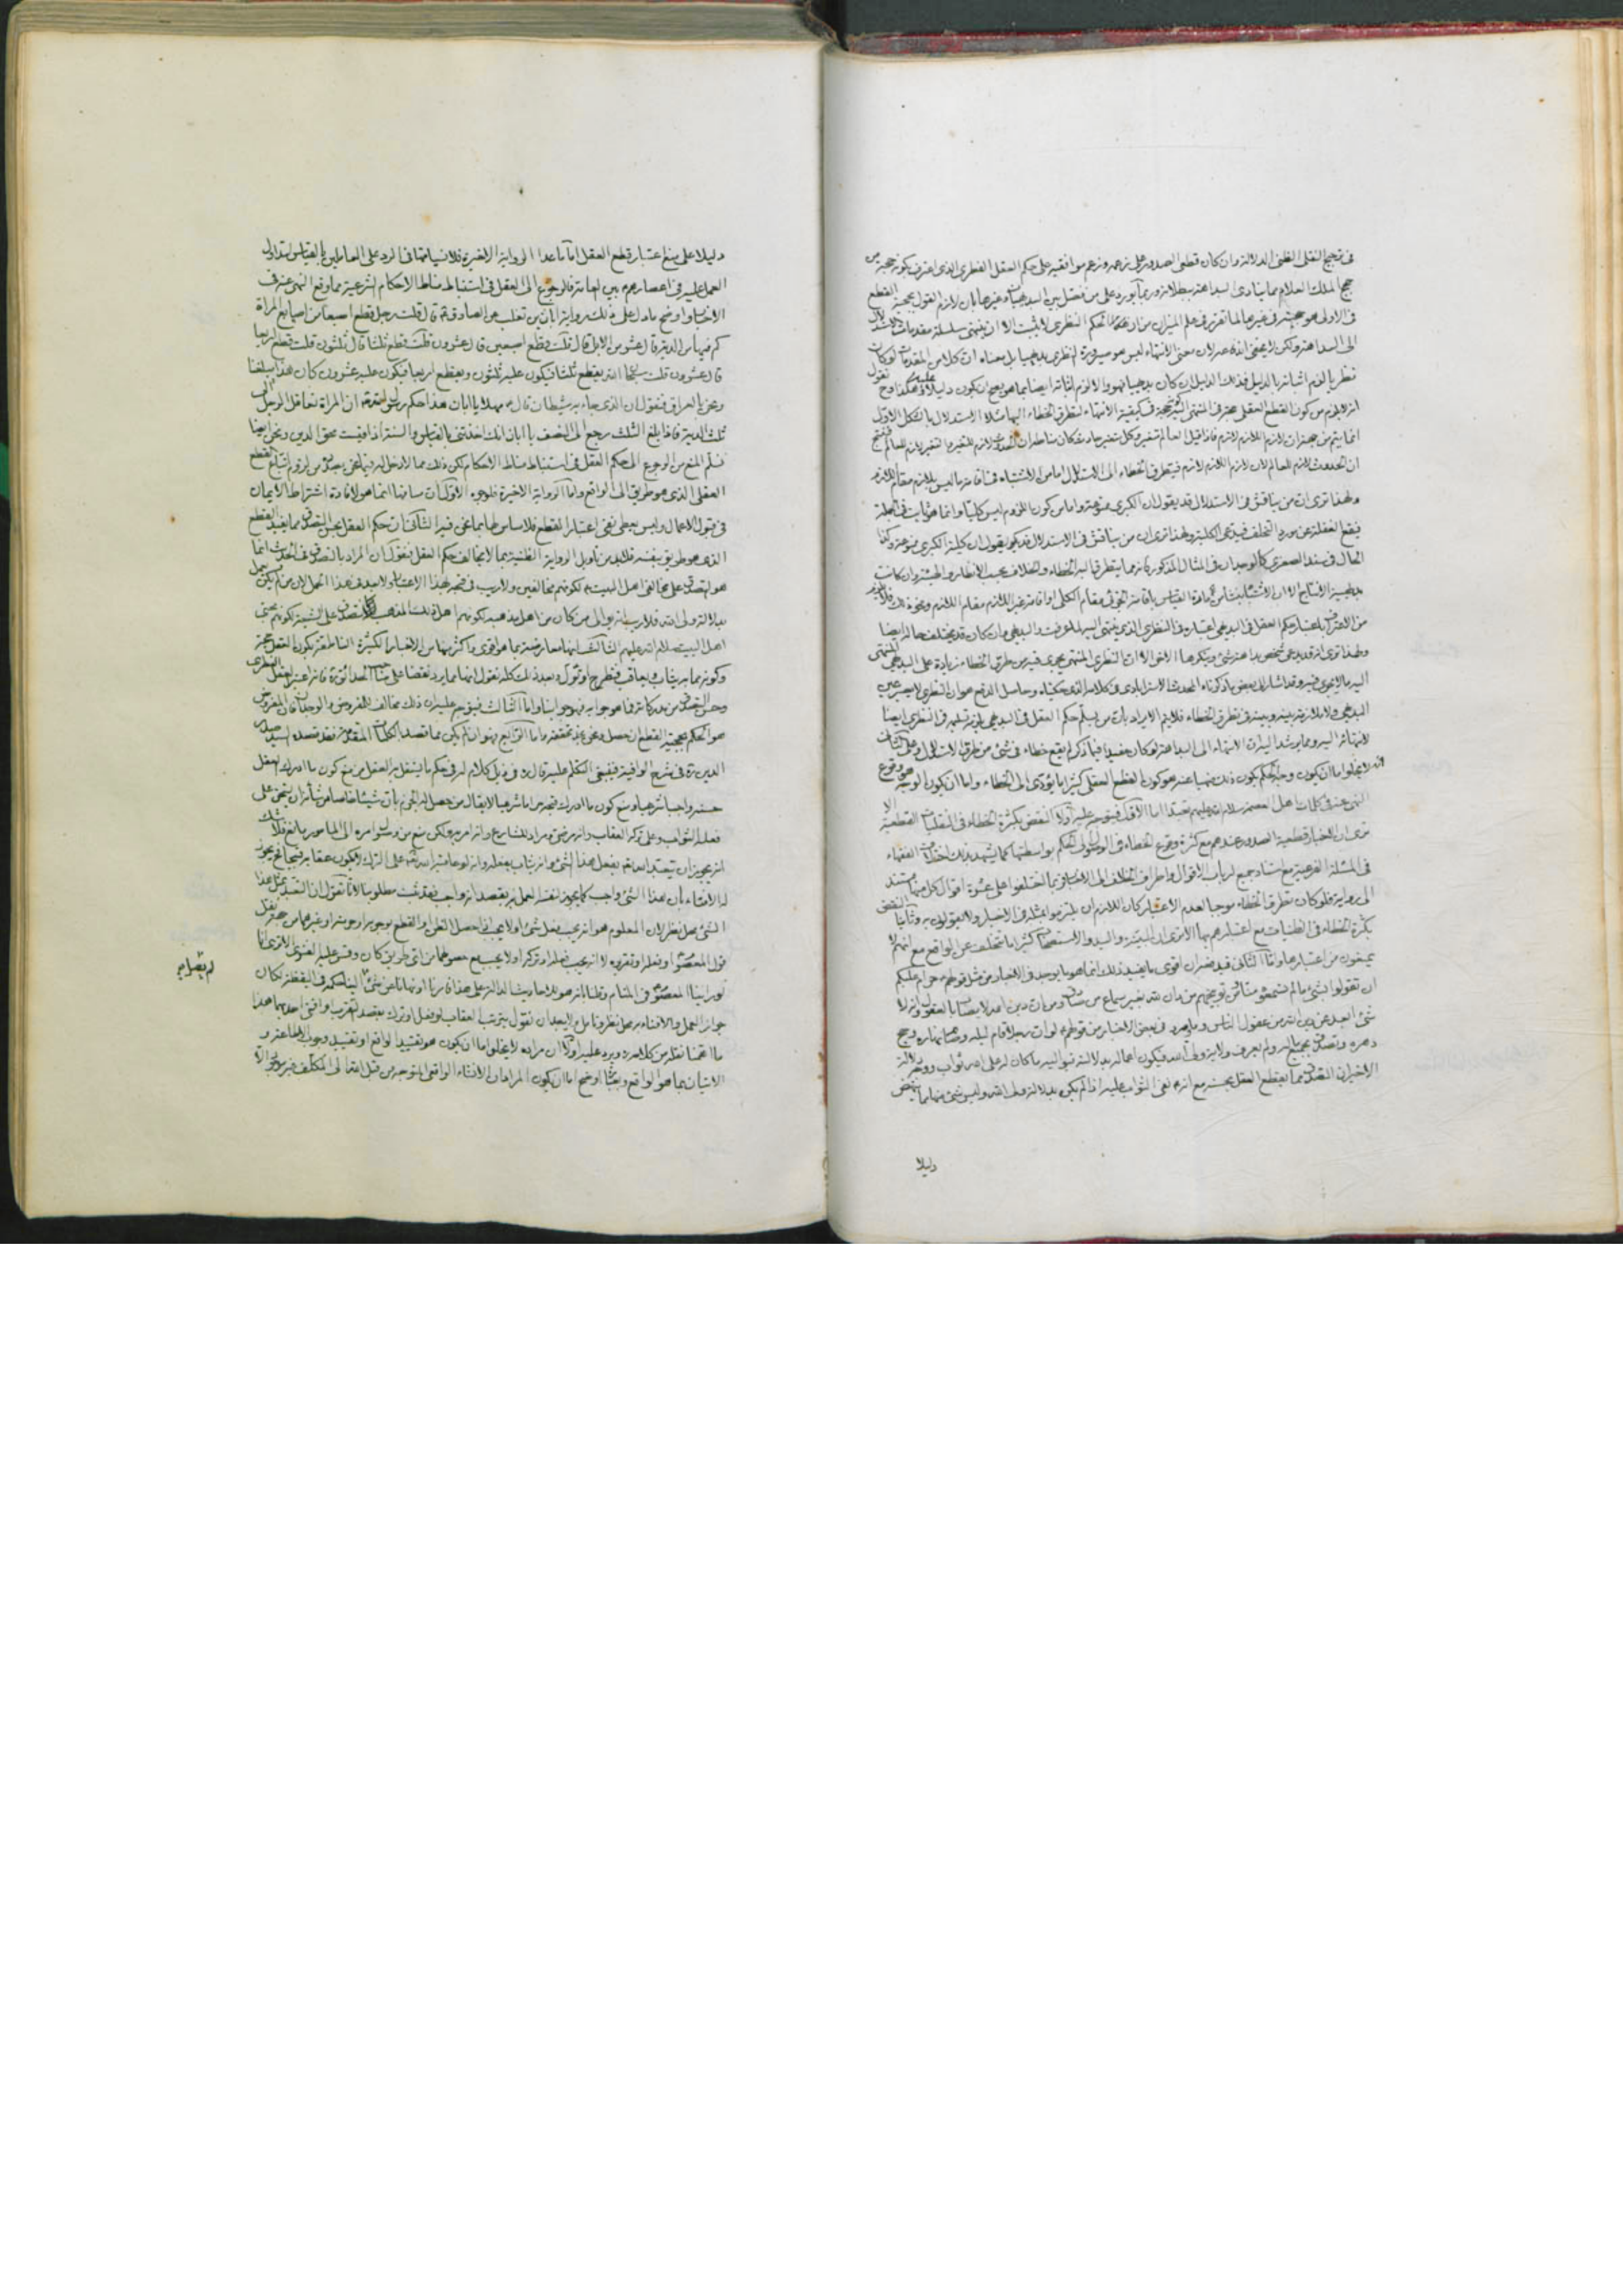 في ترجيح النقلي الظني الدلالة وان كان قطعي الصدور على زعمه وزعم موافقيه على حكم العقل الفطري الذي اعترف بكونه حجة من
حجج الملك العلام مما ينادي البداهة ببطلانه وربما يورد على من فصل بين البديهيات وغيرها بان لازم القول بحجية القطع
في الاولى هو حجيته في غيرها لما تقرر في علم الميزان من ان الحكم النظري لا يثبت الا ان ينتهي سلسلة مقدمات الاستدلال
الى البداهة ولكن لا يخفى اندفاعه لان معنى الانتهاء ليس هو صيرورة النظري بديهيا بل معناه ان كلا من المقدمات لو كان
نظريا لزم اثباته بالدليل فذلك الدليل ان كان بديهيا فهو والا لزم اثباته ايضا بما هو يصح ان يكون دليلا عليه وهكذا وح نقول
انه لا يلزم من كون القطع العقلي معتبرا في المنتهى اليه حجية في كيفية الانتهاء لتطرق الخطاء اليها مثلا الاستدلال بالشكل الاول
انما يتم من جهة ان لازم اللازم لازم فاذا قيل العالم متغير وكل متغير حادث كان مناطه ان الحدوث لازم للتغير والتغير لازم للعالم فينتج
ان الحدوث لازم للعالم لان لازم اللازم لازم فيتطرق الخطاء الى الاستدلال اما من الاشتباه في اقامة ما ليس بلازم مقام اللازم
ولهذا ترى ان من يناقش في الاستدلال قد يقول ان الكبرى ممنوعة واما من كون اللزوم ليس كليا وانما هو ثابت في الجملة
فيقع الغفلة عن مورد التخلف فيدعى الكلية ولهذا ترى ان من يناقش في الاستدلال قد يقول ان كلية الكبرى ممنوعة وكذا
الحال في سند الصغرى كالوجدان في المثال المذكور فانه مما يتطرق اليه الخطاء والخلاف بحسب الانظار والهيئة وان كانت
بديهية الانتاج الا ان الاشتباه ينشأ من مادة القياس باقامة الجزئي مقام الكلي او اقامة غير اللازم مقام اللازم ونحو ذلك فلا يلزم
من الاعتراف باعتبار حكم العقل في البديهي اعتباره في النظري الذي ينتهي اليه لما عرفت والبديهي وان كان قد يختلف حاله ايضا
ولهذا ترى انه قد يدعي شخص بداهة شيء وينكرها الآخر الا ان النظري المنتهي يجري فيه من طرق الخطاء زيادة على البديهي المنتهى
اليه ما لا يجري فيه وقد اشار الى بعض ما ذكرناه المحدث الاسترابادي في كلامه الذي حكيناه وحاصل الدفع هو ان النظري لا يصير عين
البديهي ولا ملازمة بينه وبينه في تطرق الخطاء فلا يتم الايراد بان من يسلم حكم العقل في البديهي يلزمه تسليمه في النظري ايضا
لانتهائه اليه ومما يرشد اليه ان الانتهاء الى البداهة لو كان مفيدا فيما ذكر لم يقع خطاء في شيء من طرق الاستدلال وعلى الثاني
انه لا يخلو اما ان يكون وجه الحكم بكون ذلك منهيا عنه هو كون القطع العقلي كثيرا ما يؤدي الى الخطاء واما ان يكون الوجه هو وقوع
النهي عنه في كلمات اهل العصمة سلام الله عليهم تعبدا اما الاول فيتوجه عليه اولا النقض بكثرة الخطاء في النقليات القطعية الا
ترى ان الاخبار قطعية الصدور عندهم مع كثرة وقوع الخطاء في الوصول الى الحكم بواسطتها كما يشهد بذلك اختلاف الفقهاء
في المسئلة الفرعية مع استناد جميع ارباب الاقوال واطراف الخلاف الى الاخبار فربما اختلفوا على عشرة اقوال كل منها مستند
الى رواية فلو كان تطرق الخطاء موجبا لعدم الاعتبار كان اللازم ان يلتزموا بمثله في الاخبار ولا يقولون به وثانيا النقض
بكثرة الخطاء في الظنيات مع اعتبارهم بها الا ترى ان البينة واليد والاستصحاب كثيرا ما تتخلف عن الواقع مع انهم لا
يمنعون من اعتبارها واما الثاني فيدفعه ان اقوى ما يفيد ذلك انما هو ما يوجد في الاخبار من مثل قولهم حرام عليكم
ان تقولوا بشيء ما لم تسمعوه منا
شيء ابعد عن دين الله من عقول الناس وما ورد في بعض الاخبار من قولهم لو ان رجلا قام ليله وصام نهاره وحج
دهره وتصدق بجميع ماله ولم يعرف ولاية ولي الله فيكون اعماله بدلالته فيواليه ما كان له على الله ثواب ووجه دلالة
الاخير ان التصدق مما يقطع العقل بحسنه مع انه نفى الثواب عليه اذا لم يكن بدلالة ولي الله وليس شيء منها مما ينهض
دليلا
دليلا على منع اعتبار قطع العقل اما ما عدا الرواية الاخيرة فلانسياقها في الرد على العاملين بالقياس لتداول
العمل عليه في اعصارهم بين العامة فالرجوع الى العقل في استنباط مناط الاحكام الشرعية مما وقع النهي عنه في
الاخبار واوضح ما دل على ذلك رواية ابان بن تغلب عن الصادق قال قلت رجل قطع اصبعا من اصابع المراة
كم فيها من الدية قال عشر من الابل قال قلت قطع اصبعين قال عشرون قلت قطع ثلثا قال ثلثون قلت قطع اربعا
قال عشرون قلت سبحان الله يقطع ثلثا فيكون عليه ثلثون ويقطع اربعا فيكون عليه عشرون كان هذا يبلغنا
ونحن بالعراق فنقول ان الذي جاء به شيطان قال مهلا يا ابان هذا حكم رسول الله ان المراة تعاقل الرجل الى
ثلث الدية فاذا بلغ الثلث رجع الى النصف يا ابان انك اخذتني بالقياس والسنة اذا قيست محق الدين ونحن ايضا
نسلم المنع من الرجوع الى حكم العقل في استنباط مناط الاحكام لكن ذلك مما لا دخل له فيما نحن بصدده من لزوم اتباع القطع
العقلي الذي هو طريق الى الواقع واما الرواية الاخيرة فلوجوه الاول ان مساقها انما هو لافادة اشتراط الايمان
في قبول الاعمال وليس يعطى نفي اعتبار القطع فلا مساس لها بما نحن فيه الثاني ان حكم العقل بحسن التصدق مما يفيد القطع
الذي هو طريق بنفسه فلا بد من تأويل الرواية الظنية بما لا يخالف حكم العقل فنقول ان المراد بالتصدق في الحديث انما
هو التصدق على مخالفي اهل البيت لكونهم مخالفين ولا ريب في قبحه بهذا الاعتبار ولا يبعد هذا الحمل لان من لم يكن عمل
بدلالة ولي الله فلا ريب انه يوالي من كان من اهل مذهبه لكونهم اهلا لذلك المذهب
اهل البيت سلام الله عليهم الثالث انها معارضة بما هو اقوى واكثر منها من الاخبار الكثيرة الناطقة بكون العقل حجة
وكونه مما به يثاب وبه يعاقب فتطرح او تؤول وبعد ذلك كله نقول انها مما يرد نقضا على صاحب الحدائق فانه اعتبر العقل الفطري
وحسن التصدق من مدركاته فما هو جوابه فهو جوابنا واما الثالث فيتوجه عليه ان ذلك مخالف للفرض والوجدان فان المفروض
هو الحكم بحجية القطع ان حصل ودعوى عدم تحققه واما الرابع فهو وان لم يكن مما قصد الكلمات المتقدمة فقد قصده السيد صدر
الدين ره في شرح الوافية فينبغي التكلم عليه قال ره في ذيل كلام له في حكم ما يستقل به العقل من منع كون ما ادرك العقل
حسنه واجبا شرعيا ومنع كون ما ادرك قبحه حراما شرعيا لا يقال من حصل له الجزم بان شيئا خاصا من شأنه ان يستحق على
فعله الثواب وعلى تركه العقاب وانه مرضي ومراد للشارع وانه امر به ولكن منع من وصول امره الى المأمور مانع فلا شك
انه يجوز ان يتعبد الله تعالى بفعل هذا الشيء وانه يثاب بفعله وانه لو عاقبه الله تعالى على الترك لا يكون عقابه قبيحا فح يجوز
له الافتاء بان هذا الشيء واجب كما يجوز لنفسه العمل به بقصد انه واجب فقد ثبت مطلوبنا لانا نقول ان التعبد بمثل هذا
الشيء محل نظر لان المعلوم هو انه يجب فعل شيء او لا يجب اذا حصل الظن او القطع بوجوبه او حرمته او غيرهما من جهة نقل
قول المعصوم او فعله او تقريره لا انه يجب فعله او تركه او لا يجب مع حصولهما من اي طريق كان وقس عليه الفتوى الا ترى انا
لو راينا المعصوم في المنام وظننا انه هو للاحاديث الدالة على هذا فامرنا او نهانا عن شيء لم نعلم حكمه في اليقظة لكان
جواز العمل والافتاء به محل نظر وتأمل
ما اهمنا نقله من كلامه ويرد عليه اولا ان مراده لا يخلو اما ان يكون هو تقييد الواقع او تقييد وجوب الاطاعة و
الاتيان بما هو الواقع